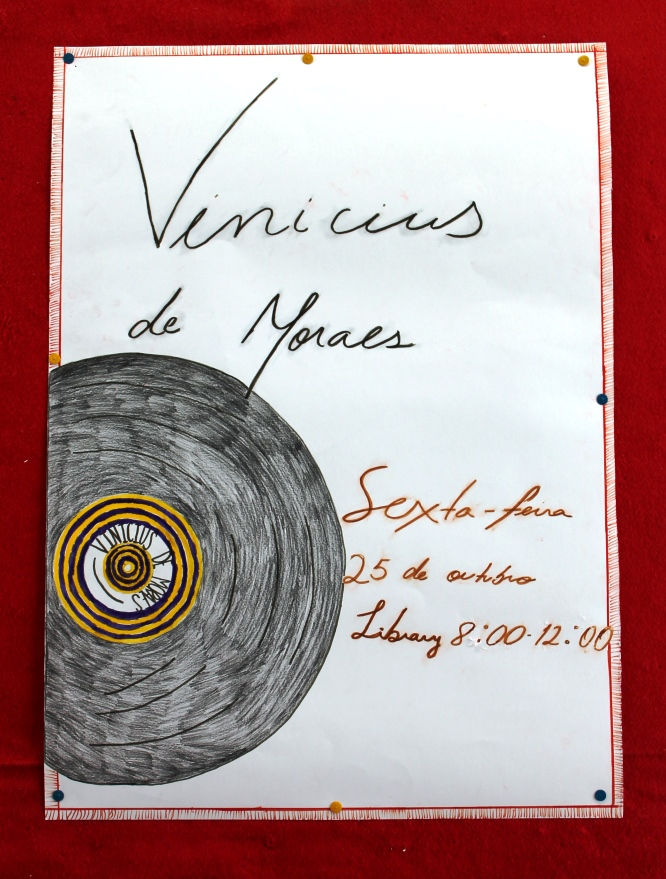 Vinicius
de Moraes
Sexta-feira
25 de outubro
Library 8:00-12:00
VINICIUS DE
MORAES